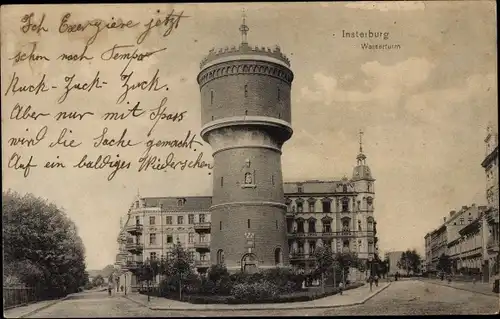 Ich Exerziere jetzt
schon nach Tempos
Ruck-Zuck-Zuck.
Aber nur mit Spass
wird die Sache gemacht
Auf ein baldiges Wiedersehen
Insterburg
Wasserturm